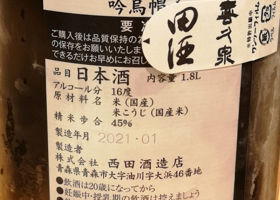 吟烏帽
喜久泉
田酒
要冷
ご購入後は品質保持の為
の保存をお願い
できるだけお早めにお召し
品目 日本酒 内容量 1.8L
アルコール分 16度
原材料名 米(国産)
米こうじ(国産米)
精米歩合 45%
製造年月 2021.01
製造者
株式会社 西田酒造店
青森県青森市大字油川字大浜46番地
●飲酒は20歳になってから
●妊娠中・授乳期の飲酒は控えましょう